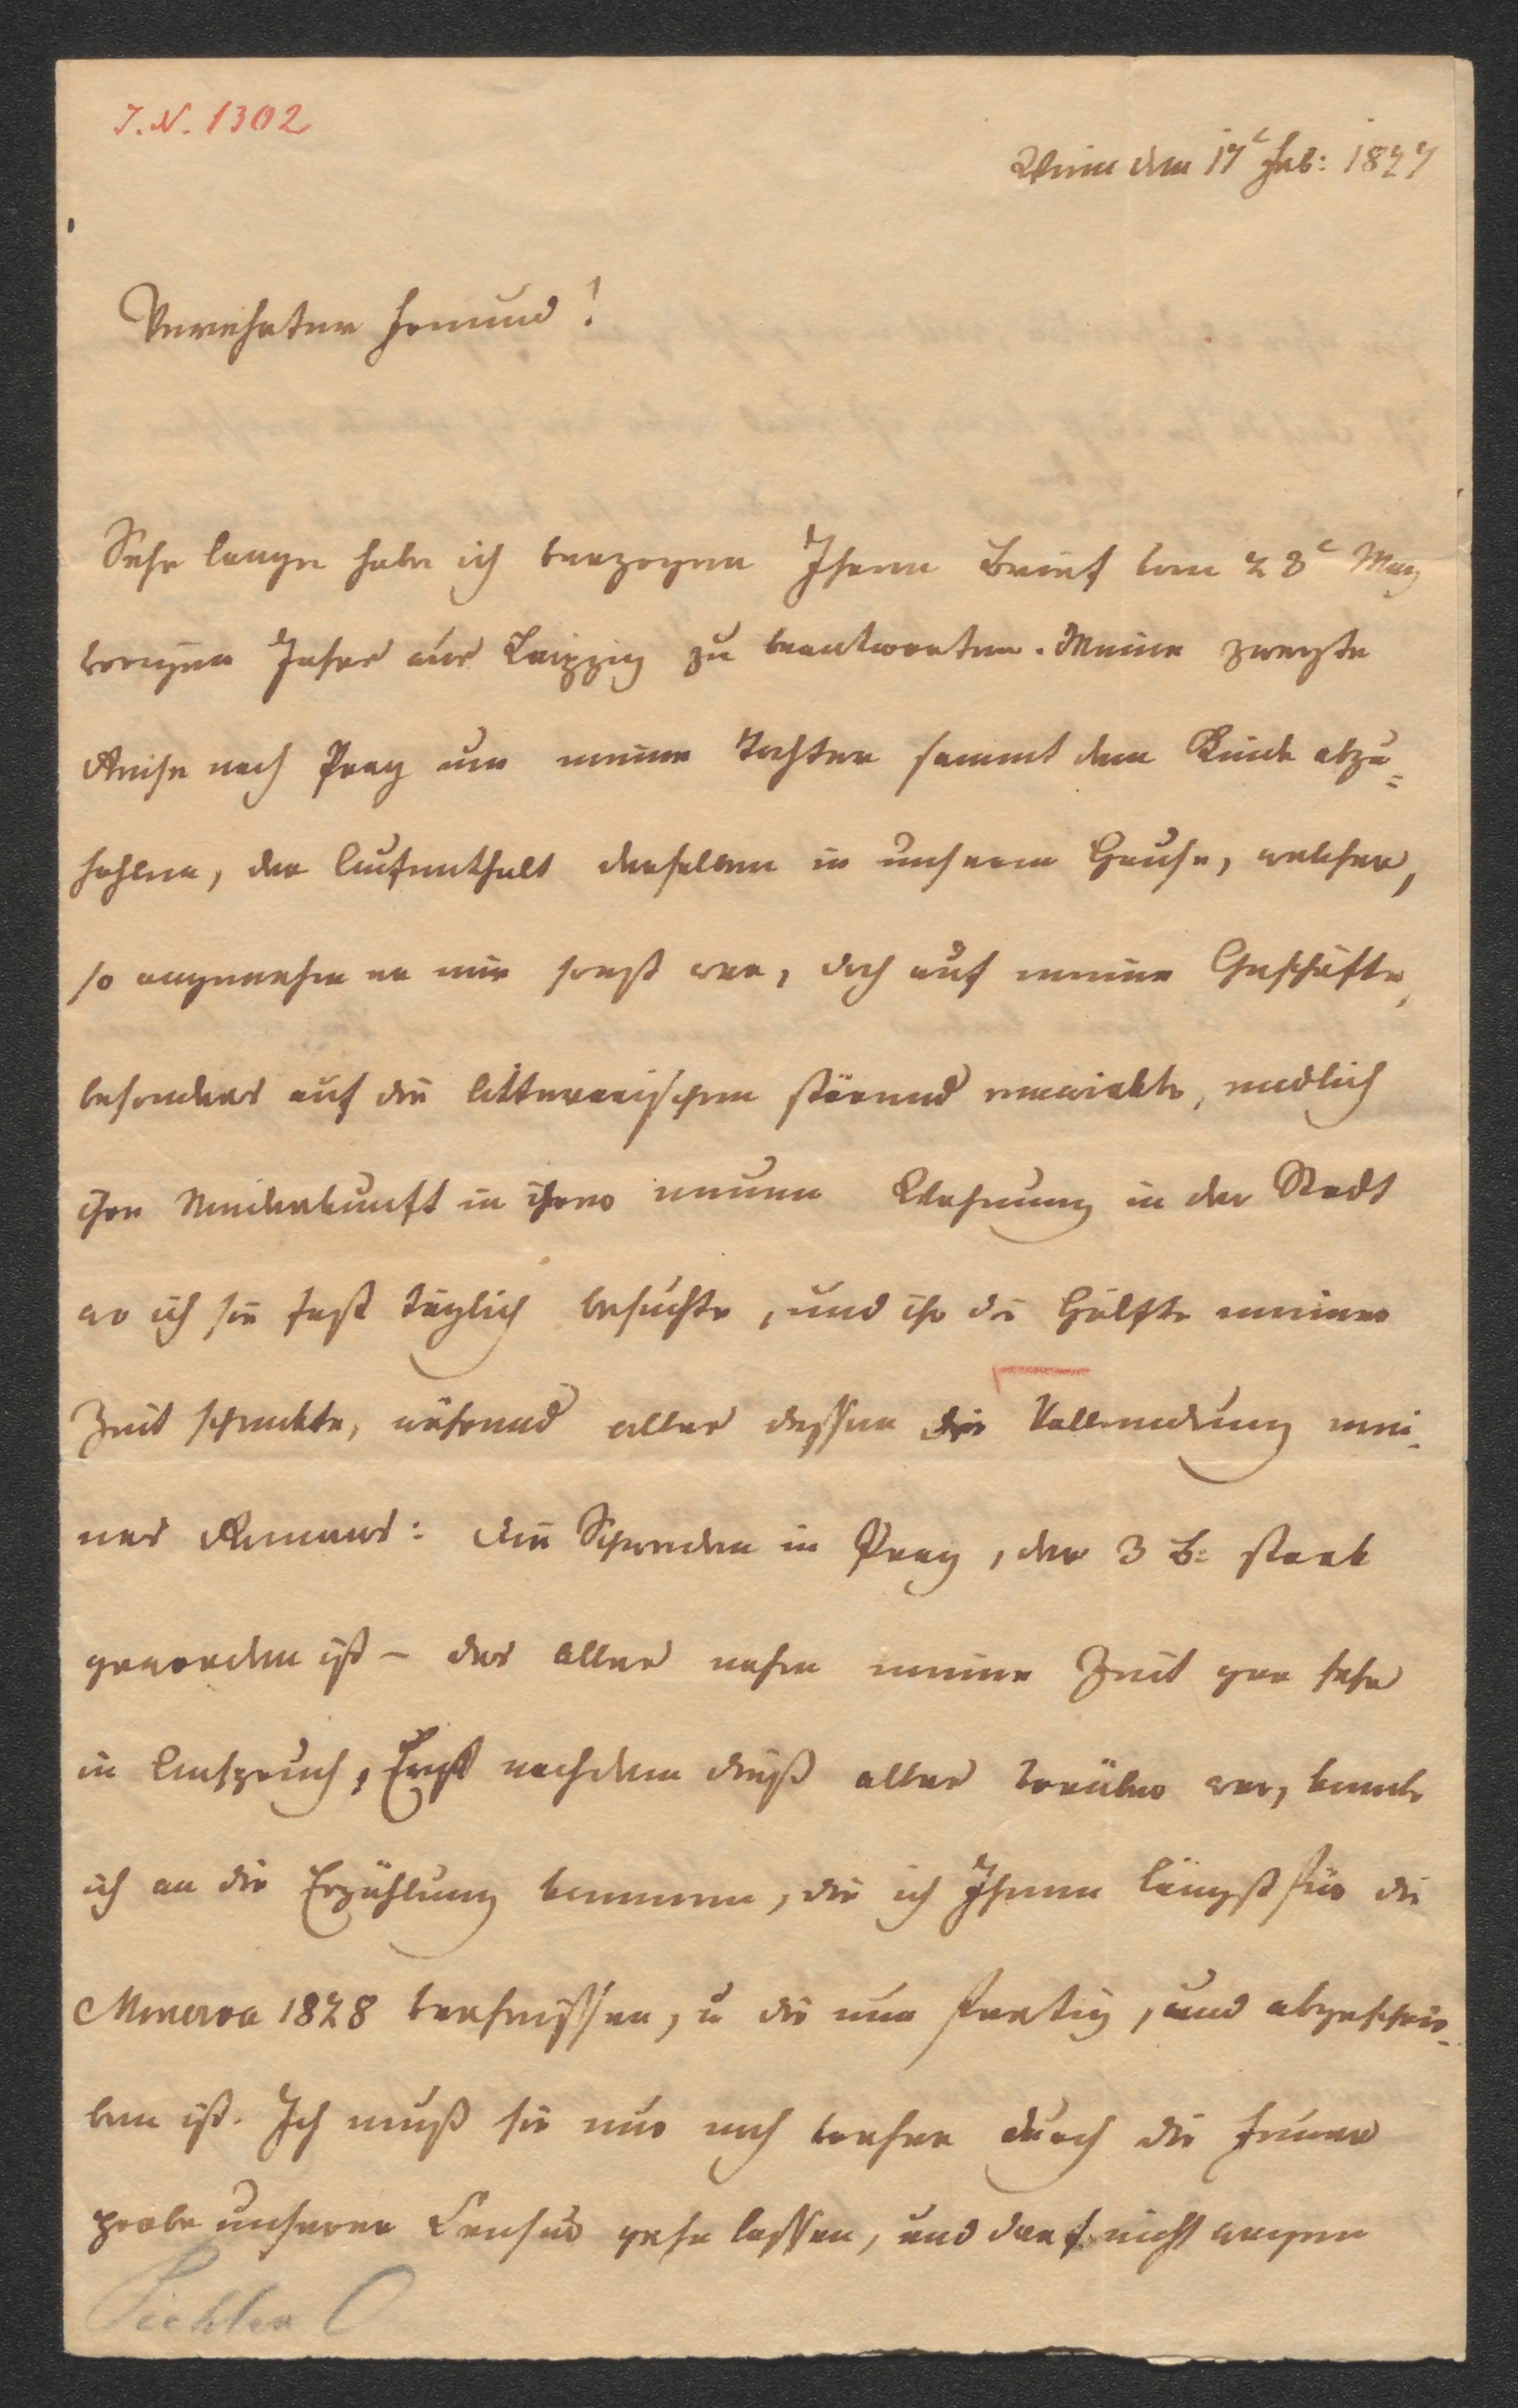 J. N. 1302
Wien den 17t Feb: 1827
Verehrter Freund!
Sehr lange habe ich verzogen Ihren Brief vom 28t May
vorigen Jahrs aus Leipzig zu beantworten. Meine zweyte
Reise nach Prag um meine Tochter sammt dem Kinde abzu=
hohlen, der Aufenthalt derselben in unserm Hause, welcher,
so angenehm er mir sonst war, doch auf meine Geschäfte,
besonders auf die litterarischen störend einwirkte, endlich
ihre Niederkunft in ihrer neuen Wohnung in der Stadt
wo ich sie fast täglich besuchte, und ihr die Hälfte meiner
Zeit schenkte, während alles dessen die Vollendung mei-
nes Romans: die Schweden in Prag, der 3 B: stark
geworden ist – das alles nahm meine Zeit gar sehr
in Anspruch, Erst nachdem dieß alles vorüber war, konnte
ich an die Erzählung kommen, die ich Ihnen längst für die
Minerva 1828 verheissen, u die nun fertig, und abgeschrie-
ben ist. Ich muß sie nur noch vorher durch die Feuer
probe unserer Censur gehn lassen, und darf nicht wegen
Pichler C